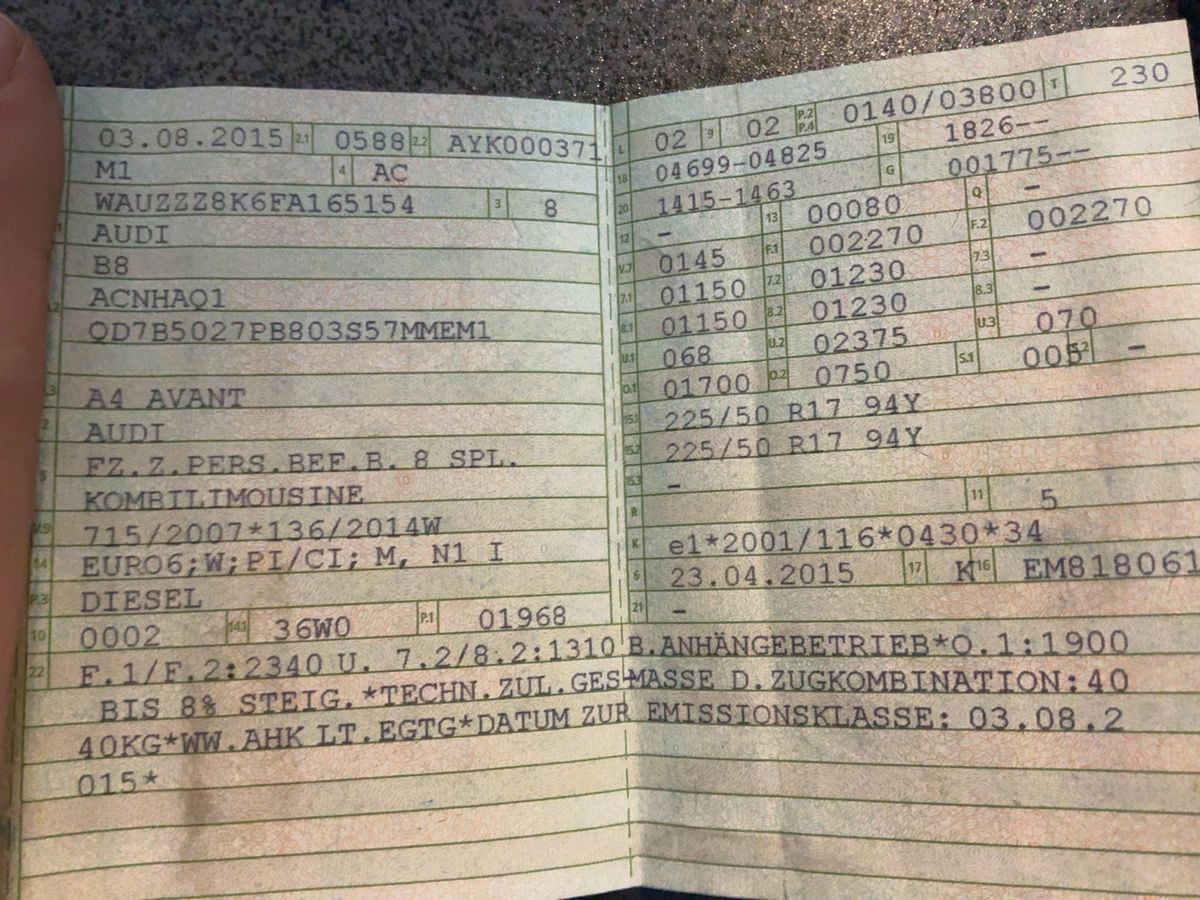 03.08.2015 2.1 0588 2.2 AYK000371
M1 4 AC
WAUZZZ8K6FA165154 3 8
AUDI
B8
ACNHAQ1
QD7B5027PB803S57MMEM1
A4 AVANT
AUDI
5 FZ.Z.PERS.BEF.B. 8 SPL.
KOMBILIMOUSINE
715/2007*136/2014W
14 EURO6;W;PI/CI; M, N1 I
P.3 DIESEL
10 0002 14.1 36W0 P.1 01968
L 02 9 02 P.2 P.4 0140/03800 T 230
18 04699-04825 19 1826--
20 1415-1463 G 001775--
12 - 13 00080 Q -
V.7 0145 F.1 002270 F.2 002270
7.1 01150 7.2 01230 7.3 -
8.1 01150 8.2 01230 8.3 -
U.1 068 U.2 02375 U.3 070
O.1 01700 O.2 0750 S.1 005 S.2 -
15.1 225/50 R17 94Y
15.2 225/50 R17 94Y
15.3 -
R 11 5
K e1*2001/116*0430*34
6 23.04.2015 17 K 16 EM818061
21 -
22 F.1/F.2:2340 U. 7.2/8.2:1310 B.ANHÄNGEBETRIEB*O.1:1900
BIS 8% STEIG.*TECHN.ZUL.GES-MASSE D.ZUGKOMBINATION:40
40KG*WW.AHK LT.EGTG*DATUM ZUR EMISSIONSKLASSE: 03.08.2
015*